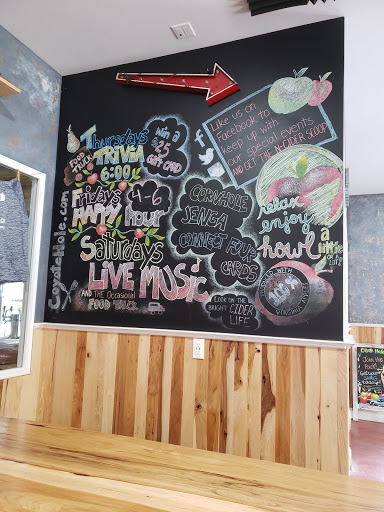 Thursdays
TRIVIA
6:00
FOOD
TRUCK
Win a
$25
GIFT CARD
Fridays 4-6
HAPPY hour
Saturdays
LIVE MUSIC
AND THE Occasional
FOOD TRUCK
Coyote-Hole.com
CORNHOLE
JENGA
CONNECT FOUR
CARDS
LOOK ON THE
BRIGHT CIDER
LIFE
Like us on
facebook to
keep up with
our special events
AND GET THE IN-CIDER SCOOP!
relax
enjoy
howl
a
little
MADE WITH
100%
VIRGINIA